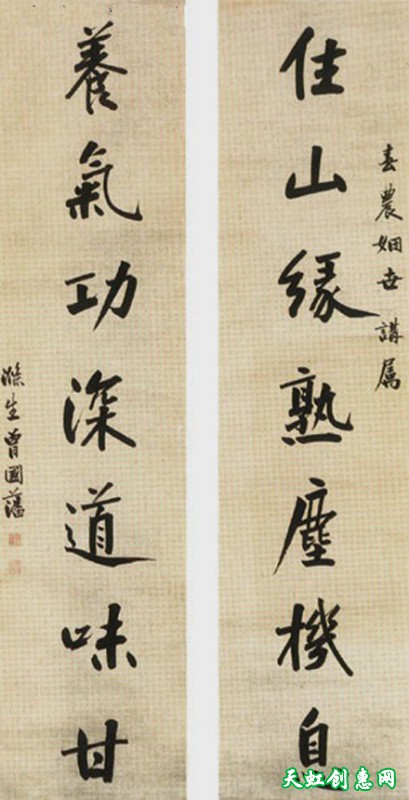 春農姻世講屬
住山緣熟塵機息
養氣功深道味甘
滌生曾國藩
天虹创惠网